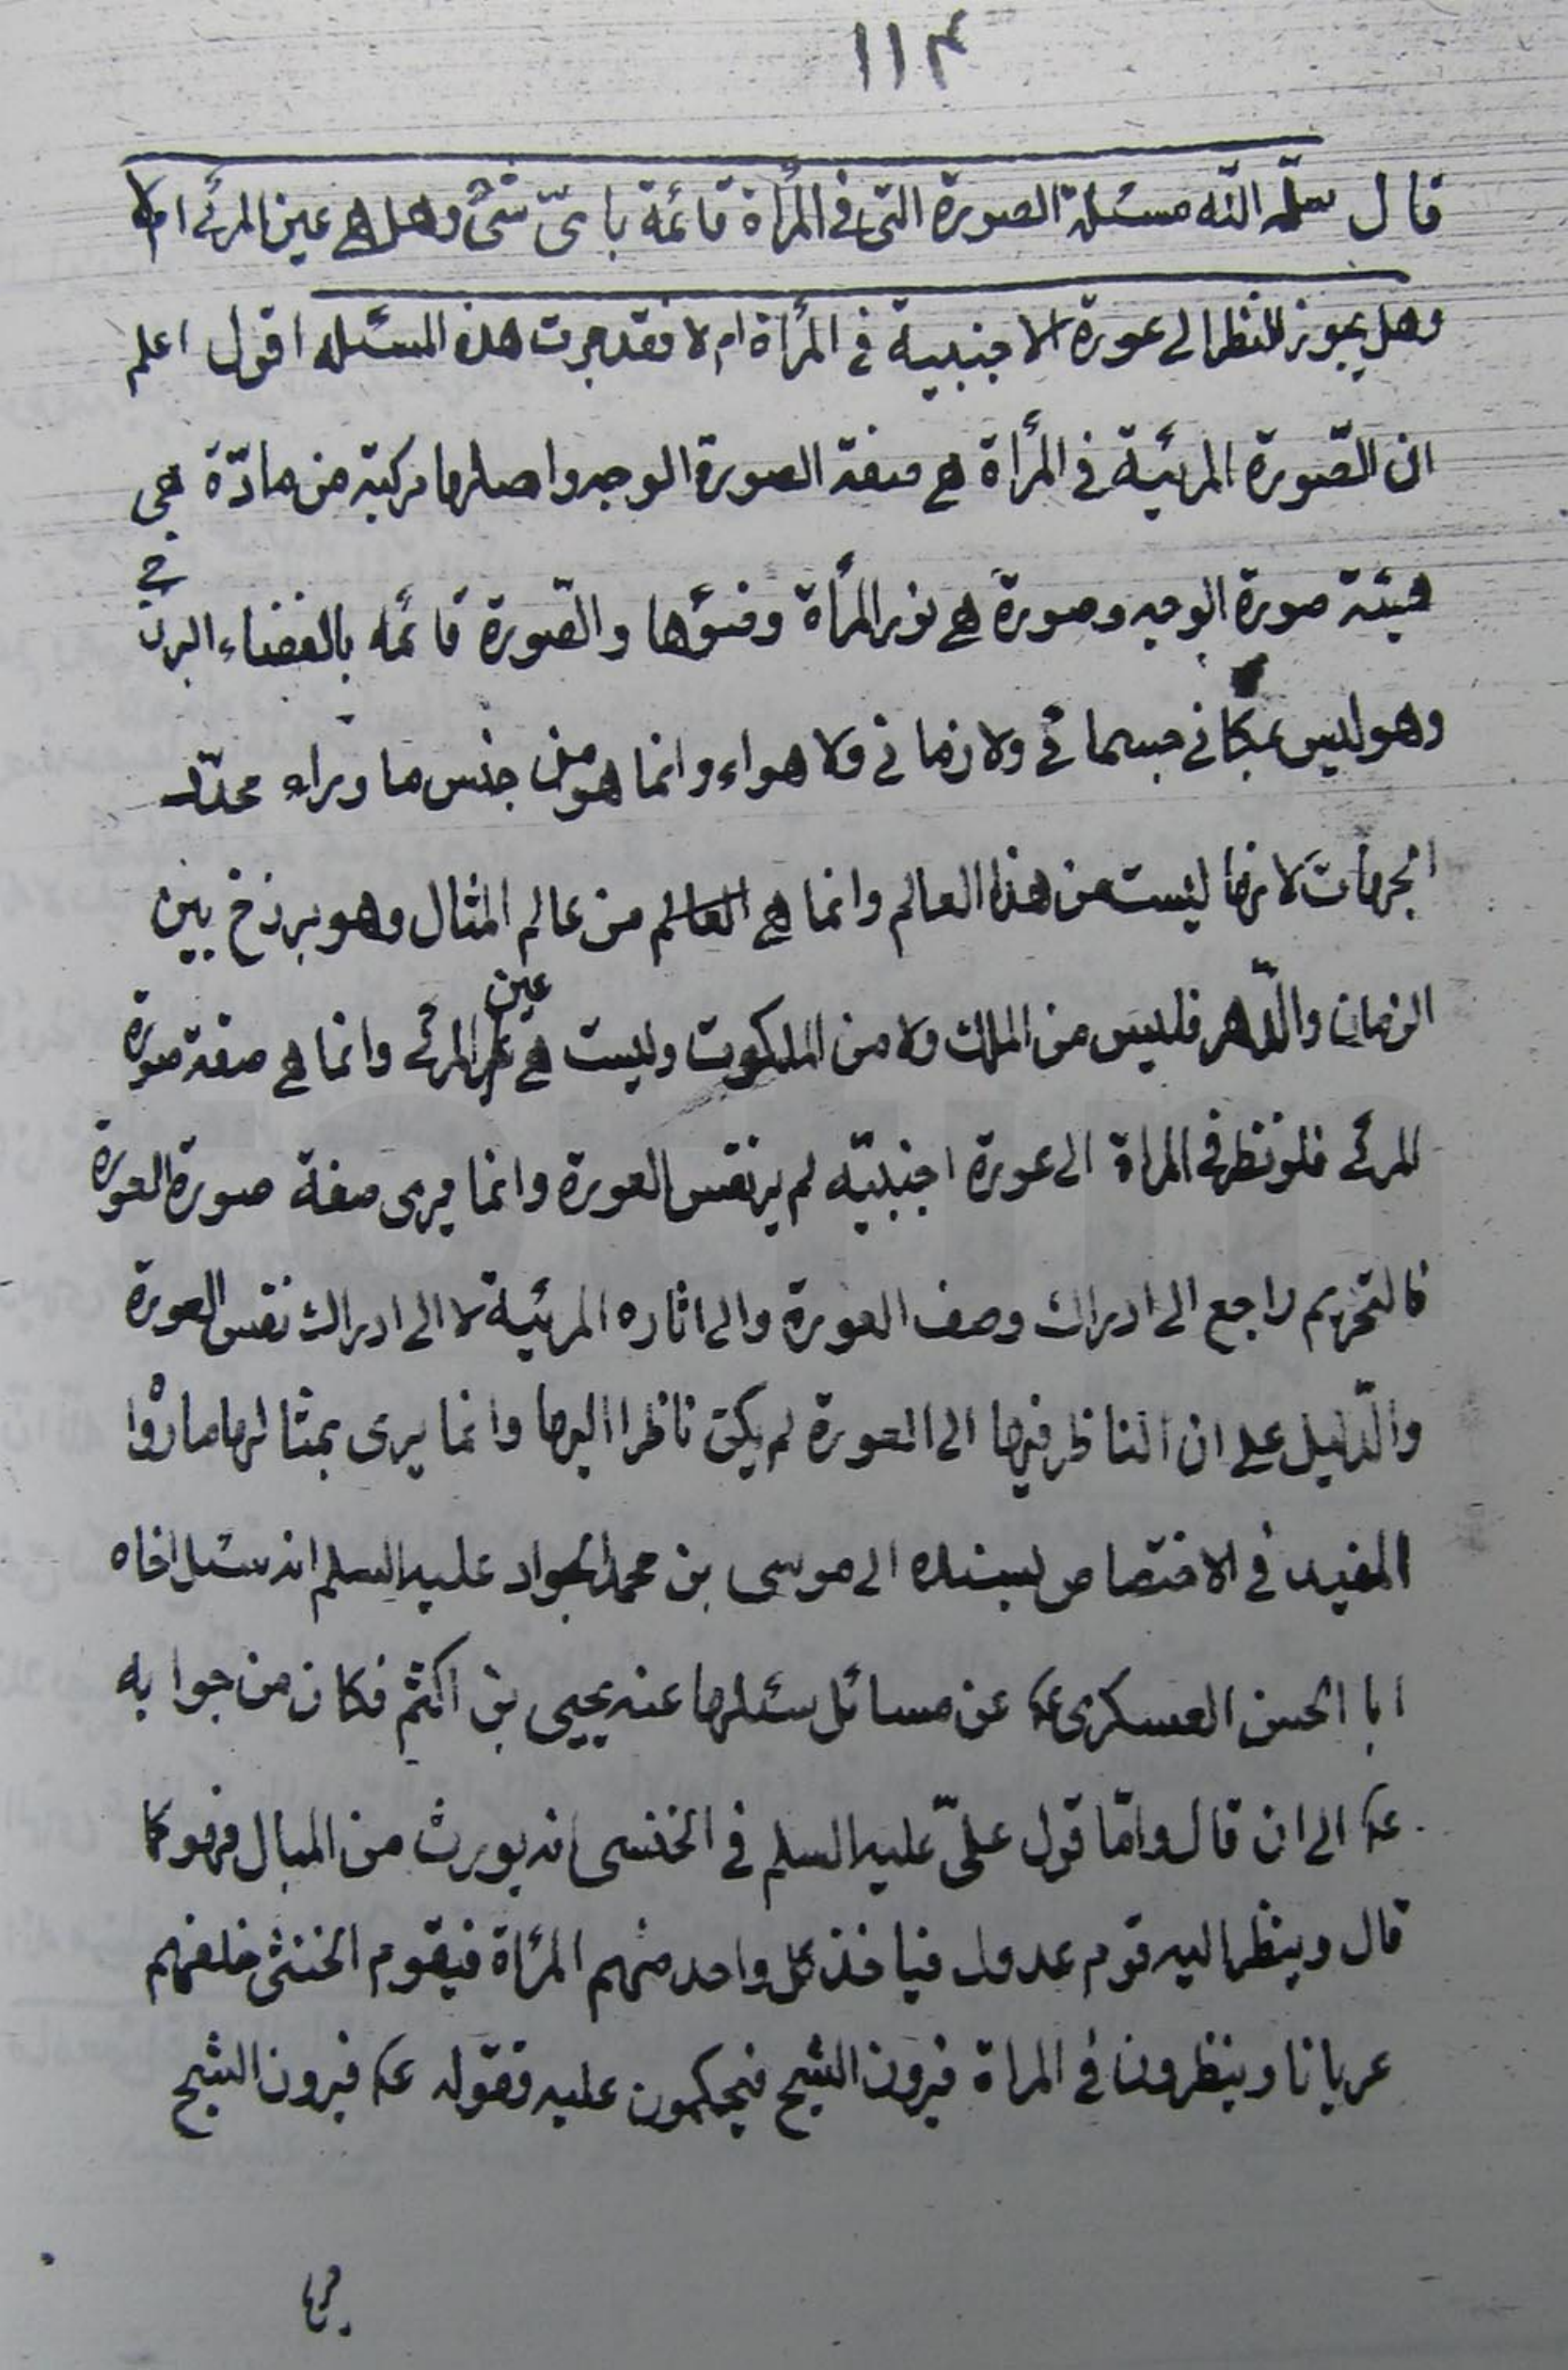 ١١٤
قال سلمه الله مسئلة الصورة التى فى المرأة قائمة باىّ شئ وهل هى عين المرئى ام لا
وهل يجوز النظر الى عورة الاجنبية فى المرأة ام لا فقد جرت هذه المسئله اقول اعلم
ان الصّورة المرئية فى المرأة هى صفة الصورة الوجه واصلها مركبة من مادّة هى
هيئة صورة الوجه وصورة هى نور المرأة وضوؤها والصّورة قائمه بالفضاء البرزخى
وهو ليس بمكانى جسمانى ولا زمانى ولا هواء وانما هو من جنس ما وراء محدّد
الجهات لانها ليست من هذا العالم وانما هى العالم من عالم المثال وهو برزخ بين
الزمان والدّهر فليس من الملك ولا من الملكوت وليست هى عين المرئى وانما هى صفة صورة
المرئى فلو نظر فى المراة الى عورة اجنبيّه لم ير نفس العورة وانما يرى صفة صورة العورة
فالتحريم راجع الى ادراك وصف العورة والى اثاره المرئية لا الى ادراك نفس العورة
والدّليل على ان الناظر فيها الى العورة لم يكن ناظرا اليها وانما يرى بمثالها ما رواه
المفيد فى الاختصاص بسنده الى موسى بن محمد الجواد عليه السلم انه سئل اخاه
ابا الحسن العسكرى ع عن مسائل سئلها عنه يحيى بن اكثم فكان من جوابه
ع الى ان قال وامّا قول علىّ عليه السلم فى الخنثى انه يورث من المبال فهو كما
قال وينظر اليه قوم عدول فياخذ كل واحد منهم المرأة فيقوم الخنثى خلفهم
عريانا وينظرون فى المراة فيرون الشبح فيحكمون عليه فقوله ع فيرون الشبح